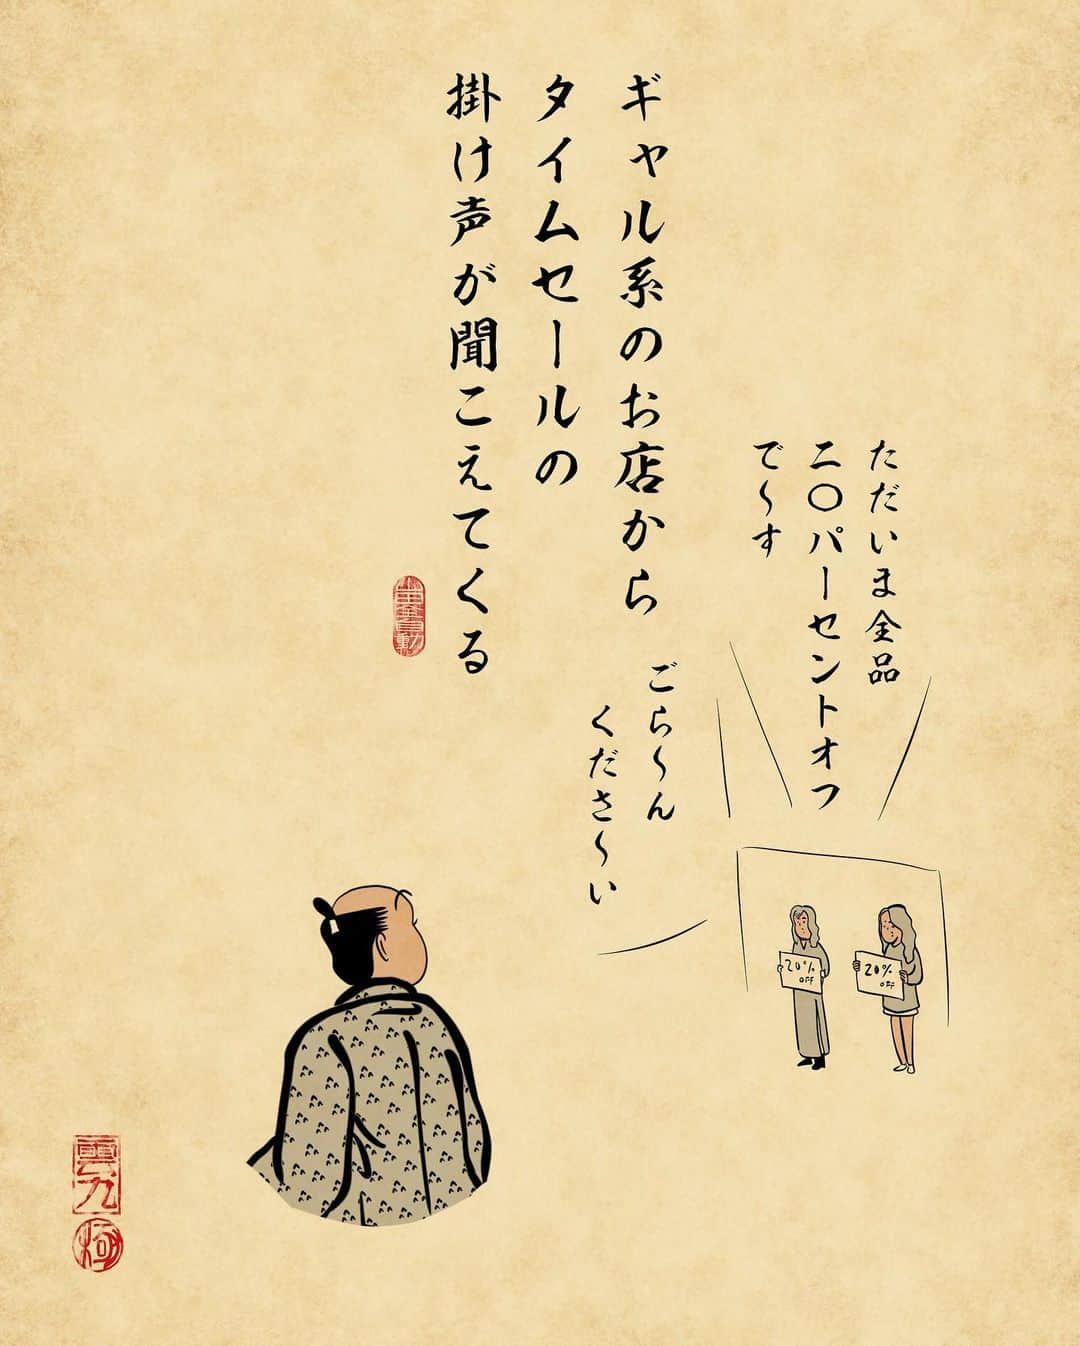 ギャル系のお店から
タイムセールの
掛け声が聞こえてくる
ただいま全品
二〇パーセントオフ
で〜す
ごら〜ん
くださ〜い
20%
OFF
20%
OFF